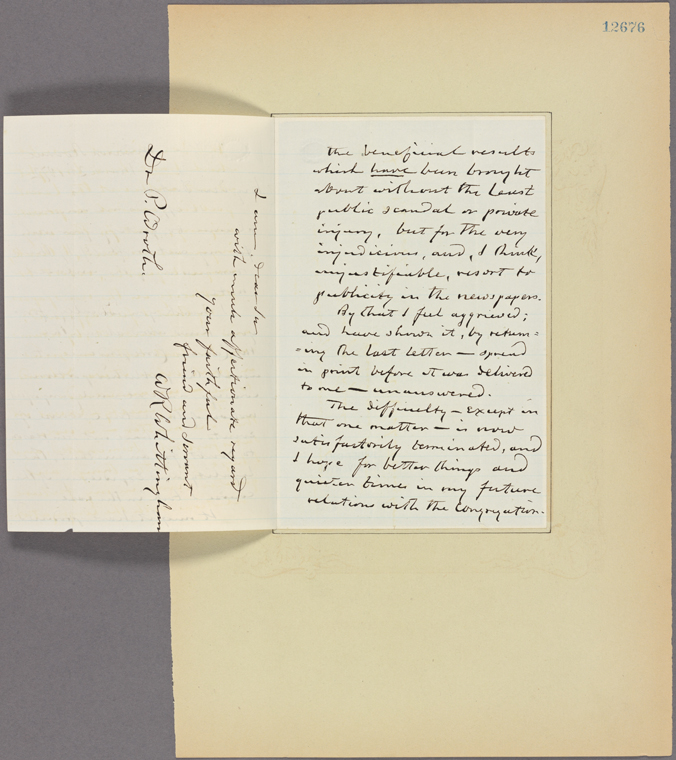 12676
the beneficial results
which have been brought
about without the least
public scandal or private
injury, but for the very
injudicious, and, I think,
unjustifiable, resort to
publicity in the newspapers.
By that I feel aggrieved;
and have shown it, by return=
=ing the last letter — spread
in print before it was delivered
to me — unanswered.
The difficulty — except in
that one matter — is now
satisfactorily terminated, and
I hope for better things and
quieter times in my future
relations with the congregation.
I am, dear Sir
with much affectionate regard
your faithful
friend and servant
W R Whittingham
Dr P. Wroth.